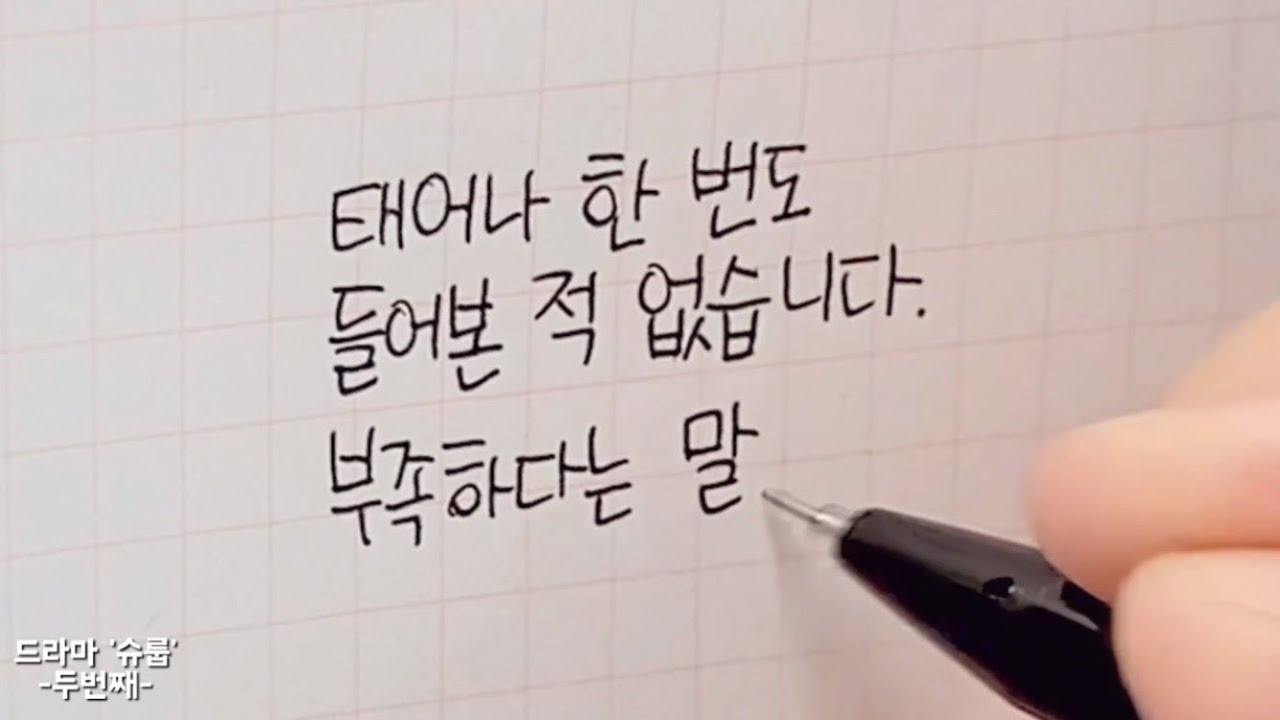 태어나 한 번도
들어본 적 없습니다.
부족하다는 말
드라마 '슈룹'
-두번째-